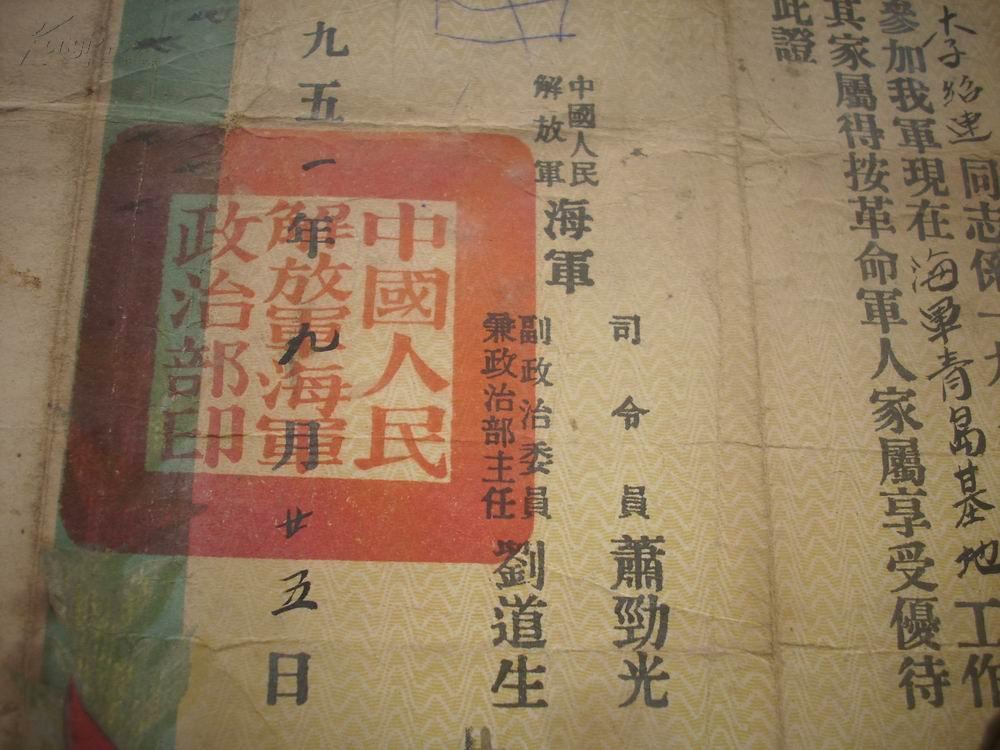 同志係一九
參加我軍現在海軍青島基地工作
其家屬得按革命軍人家屬享受優待
此證
中國人民
解放軍
海軍
司令員蕭勁光
副政治委員
兼政治部主任
劉道生
九五一年九月廿五日
中國人民
解放軍海軍
政治部印